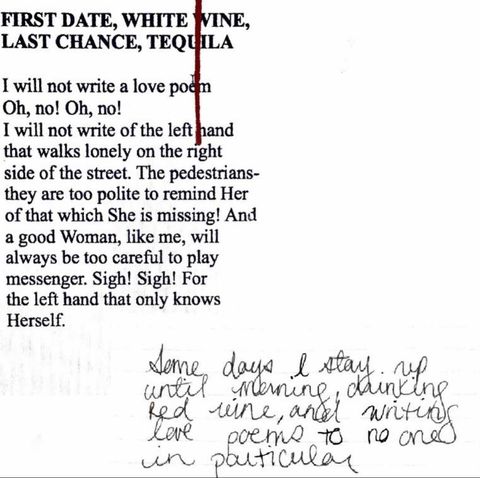 FIRST DATE, WHITE WINE,
LAST CHANCE, TEQUILA
I will not write a love poem
Oh, no! Oh, no!
I will not write of the left hand
that walks lonely on the right
side of the street. The pedestrians-
they are too polite to remind Her
of that which She is missing! And
a good Woman, like me, will
always be too careful to play
messenger. Sigh! Sigh! For
the left hand that only knows
Herself.
Some days I stay up
until morning, drinking
Red wine, and writing
love poems to no one
in particular